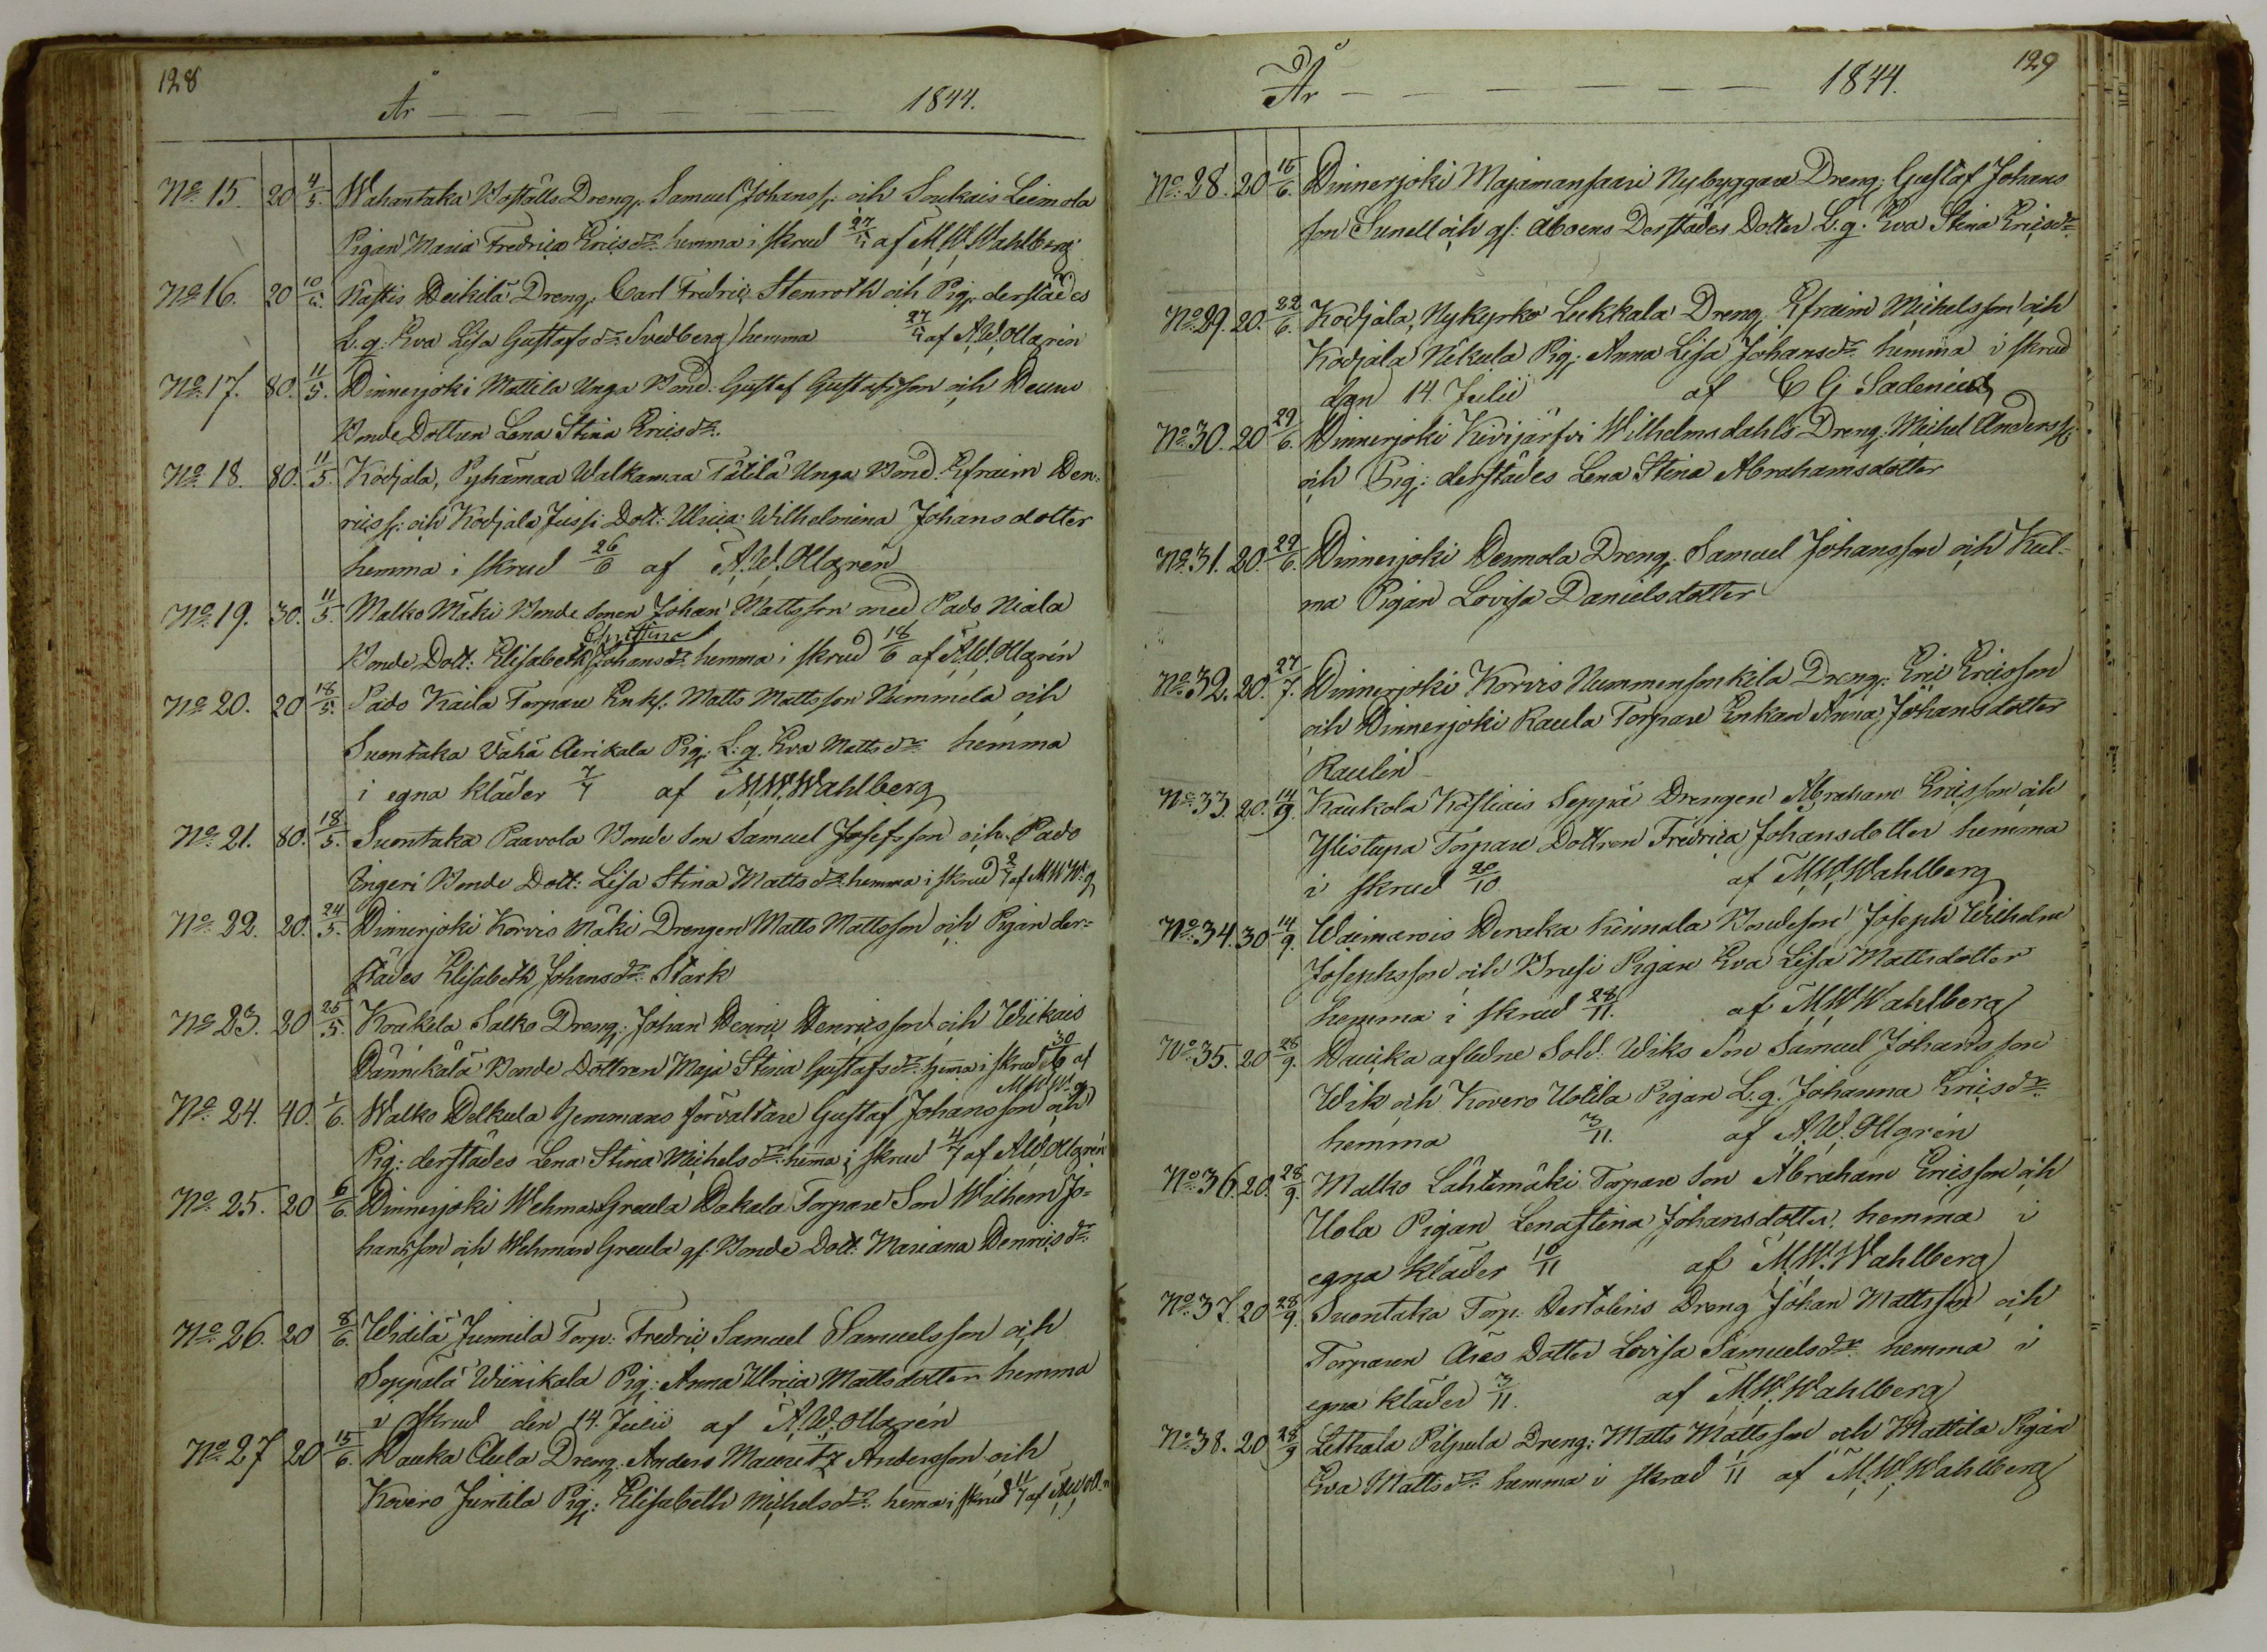 128
År 1844.
No 15. 20 4/5. Wahantaka Boställs Dreng. Samuel Johanss. och Soukais Leimola
Pigan Maria Fredrica Ericsdr. hemma i skrud af M. W. Wahlberg
No 16. 20 Dreng. Carl Fredric Stenroth och Pig. derstädes
L. q. Eva Lisa Gustafsdr. Svedberg hemma af A. W. Ollgrén
No 17. 80. 11/5. Hinnerjoki Mattila Unga Bond. Gustaf Gustafsson och
Bonde Dottren Lena Stina Ericsdr.
No 18. 80. 11/5. Kodjala, Pyhämaa Walkamaa Tätilä Unga Bond. Efraim Hen-
ricss. och Kodjala Jussi Dott: Ulrica Wilhelmina Johansdotter
hemma i skrud 26/6 af A. W. Ollgrén
No 19. 30. 11/5. Malko Mäki Bonde sonen Johan Mattsson med Pado Niala
Christina
Bonde Dott: Elisabeth Johansdr. hemma i skrud 18/6 af A. W. Ollgrén
No 20. 20 18/5. Pado Kaila Torpare Enkl. Matts Mattsson Nummela och
Suontaka Vähä Aerikala Pig. L. q. Eva Mattsdr. hemma
i egna kläder 7/7 af M. W. Wahlberg
No 21. 80. 18/5. Suontaka Paavola Bonde Son Samuel Josefsson och Pado
Ingeri Bonde Dott: Lisa Stina Mattsdr. hemma i skrud af M W W:g
No 22. 20. 24/5. Hinnerjoki Korvis Mäki Drengen Matts Mattsson och Pigan der-
städes Elisabeth Johansdr. Stark
No 23. 20 25/5. Koukela Salko Dreng. Johan Henric Henricsson och Wikais
Hännikälä Bonde Dottren Maja Stina Gustafsdr. hema i skrud 30/6 af
M W W:g
No 24. 40. 1/6. Walko Helkula Hemmans förvaltare Gustaf Johansson och
Pig: derstädes Lena Stina Michelsdr. hema i skrud 4/7 af A. W. Ollgrén
No 25. 20 6/6. Hinnerjoki Wehmaa Greula Hakala Torpare Son Wilhem Jo-
hansson och Wehmaa Greula gl. Bonde Dott. Mariana Henricsdr.
No 26. 20 8/6. Uhdilä Junnila Torp. Fredric Samuel Samuelsson och
Seppälä Wiinikala Pig: Anna Ulrica Mattsdotter hemma
i skrud den 14. Julii af A. W. Ollgrén
No 27 20 15/6. Hauka Clula Dreng. Anders Mauritz Andersson och
Kovero Juntila Pig: Elisabeth Michelsdr. hema i skrud 11/7 af A W Oll-n
129
År 1844.
No 28. 20 16/6. Hinnerjoki Majamansaari Nybyggare Dreng. Gustaf Johans
son Sunell och gl: Åboens Derstädes Dotter L. q. Eva Stina Ericsdr.
No 29. 20. 22/6. Kodjala, Nykyrko Lukkala Dreng. Efraim Michelsson och
Kodjala Nikula Pig. Anna Lisa Johansdr. hemma i skrud
den 14. Julii af C G Sadenius
No 30. 20 29/6. Hinnerjoki Kivijärfvi Wilhelmsdahls Dreng. Michel Anderss.
och Pig: derstädes Lena Stina Abrahamsdotter
No 31. 20. 29/6. Hinnerjoki Hermola Dreng. Samuel Johansson och Kul-
ma Pigan Lovisa Danielsdotter
No 32. 20. 27/7. Hinnerjoki Korvis Nummensonkila Dreng. Eric Ericsson
och Hinnerjoki Raula Torpare Enkan Anna Johansdotter
Raulin
No 33. 20. 14/9. Kaukola Kosliais Seppä Drengen Abraham Ericsson och
Ylistupa Torpare Dottren Fredrica Johansdotter hemma
i skrud 20/10 af M. W. Wahlberg
No 34. 30 14/9. Waimarois Heraka Kinnala Bondeson Joseph Wilhelm
Josephsson och Krusi Pigan Eva Lisa Mattsdotter
hemma i skrud 28/11. af M. W. Wahlberg
No 35. 20 28/9. Hauika aflidne Sold: Wiks Son Samuel Johansson
Wik och Kovero Uotila Pigan L. q. Johanna Ericsdr.
hemma 3/11. af A. W. Ollgrén
No 36. 20. 28/9. Malko Lähtemäki Torpare Son Abraham Ericsson och
Uola Pigan Lenastina Johansdotter hemma i
egna kläder 10/11 af M. W. Wahlberg
No 37. 20 28/9. Suontaka Torp. Hertolins Dreng Johan Mattsson och
Torparen Äses Dotter Lovisa Samuelsdr. hemma i
egna kläder 3/11. af M. W. Wahlberg
No 38. 20 28/9 Lethala Pilpula Dreng: Matts Mattsson och Mattila Pigan
Eva Mattsdr. hemma i skrud 1/11 af M. W. Wahlberg